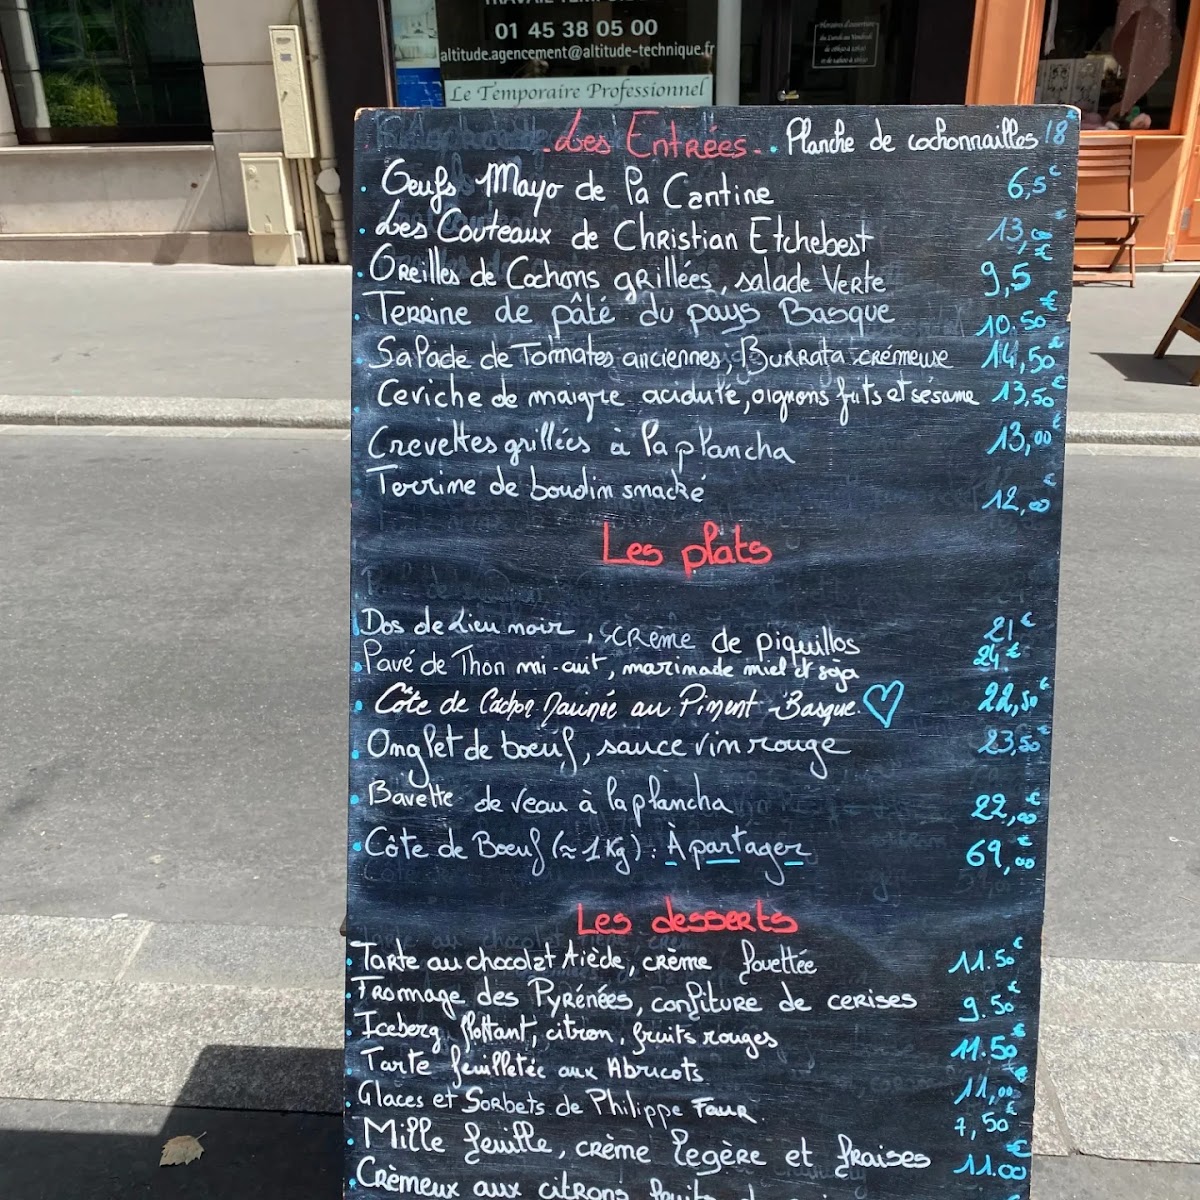 01 45 38 05 00
altitude.agencement@altitude-technique.fr
Le Temporaire Professionnel
- Les Entrées - . Planche de cochonnailles 18€
. Oeufs Mayo de la Cantine 6,5€
. Les Couteaux de Christian Etchebest 13,00€
. Oreilles de Cochons grillées, salade Verte 9,5€
. Terrine de pâté du pays Basque 10.50€
. Salade de Tomates anciennes, Burrata crémeuse 14,50€
. Ceviche de maigre acidulé, oignons frits et sésame 13,50€
Crevettes grillées à la plancha 13,00€
Terrine de boudin snacké 12,00€
Les plats
Dos de Lieu noir, crème de piquillos 21€
. Pavé de Thon mi-cuit, marinade miel et soja 24€
. Côte de Cochon Marinée au Piment Basque. 22,50€
. Onglet de boeuf, sauce vin rouge 23,50€
. Bavette de veau à la plancha 22,00€
. Côte de Boeuf (≈ 1 Kg) : À partager 69,00€
Les desserts
. Tarte au chocolat tiède, crème fouettée 11.50€
. Fromage des Pyrénées, confiture de cerises 9.50€
. Iceberg flottant, citron, fruits rouges 11.50€
. Tarte feuilletée aux Abricots 11,00€
. Glaces et Sorbets de Philippe Faur. 7,50€
. Mille feuille, crème légère et fraises 11.00€
. Crèmeux aux citrons